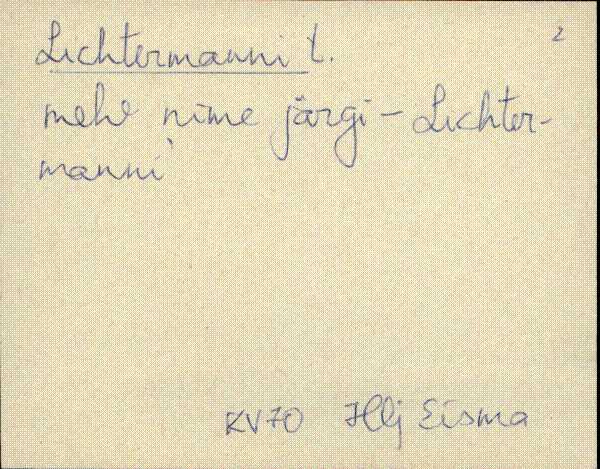 2
Lichtermanni t.
mehe nime järgi – Lichter-
manni
KV70 Hlj Eisma